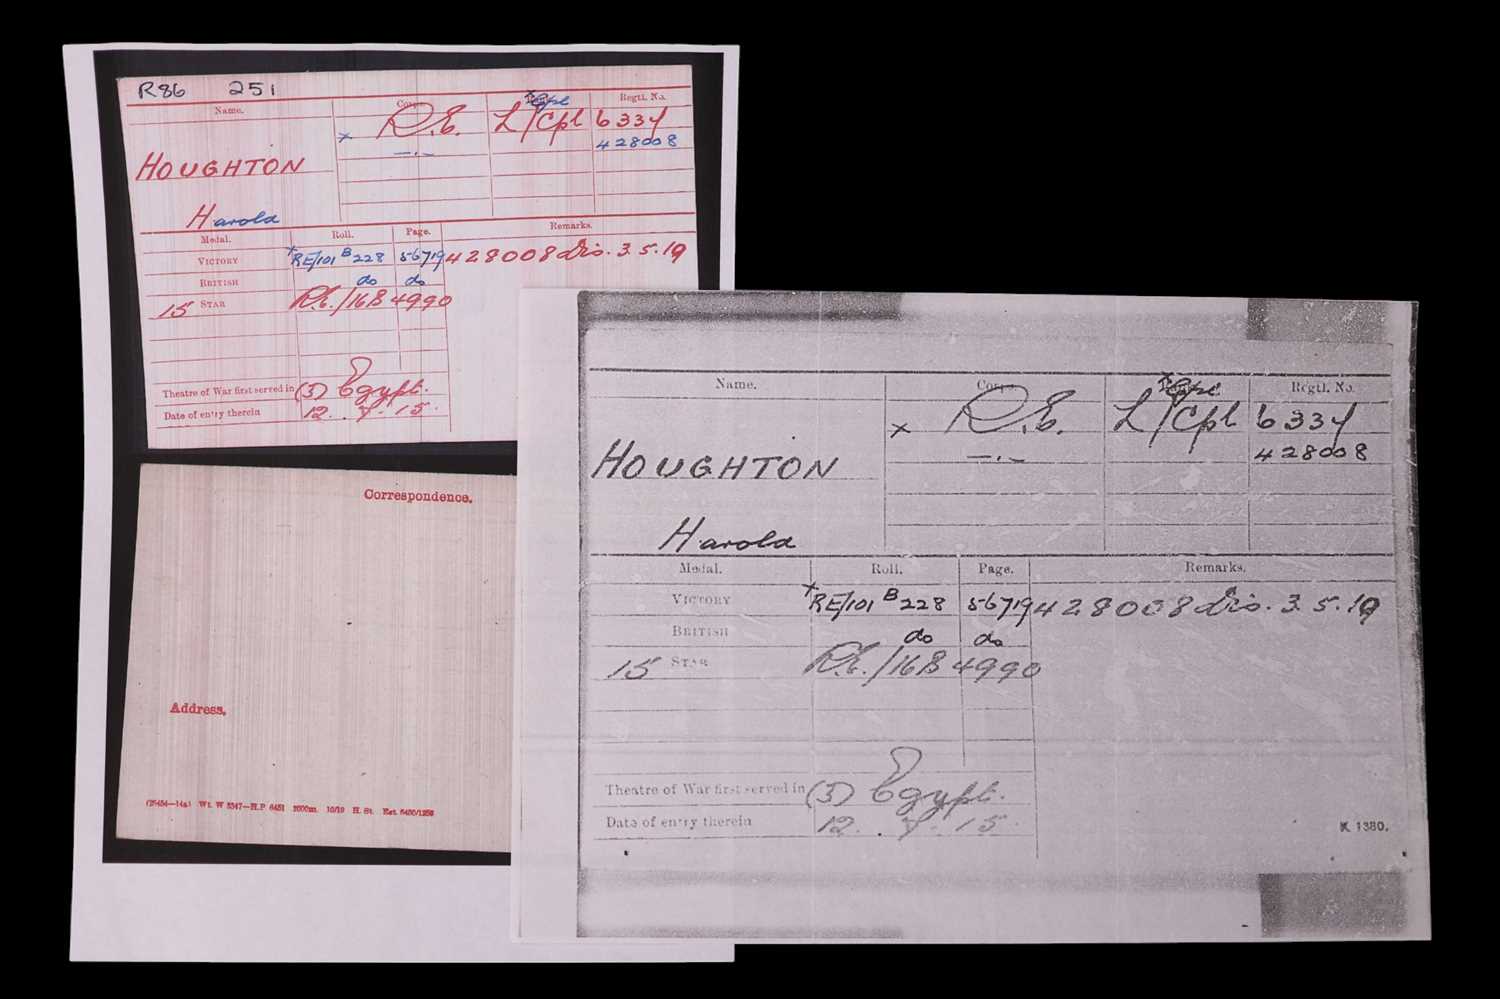 R86 251
Name. Corps. Regtl. No.
Cpl
× R.E. L/Cpl 6334
-.- 428008
HOUGHTON
Harold
Medal. Roll. Page. Remarks.
VICTORY ×RE/101 B 228 56719 428008 Dis. 3.5.19
BRITISH do do
15 STAR R.E./16B 4990
Theatre of War first served in (3) Egypt.
Date of entry therein 12. 7. 15.
Correspondence.
Address.
Name. Corps. Regtl. No.
Cpl
× R.E. L/Cpl 6334
-.- 428008
HOUGHTON
Harold
Medal. Roll. Page. Remarks.
VICTORY ×RE/101 B 228 56719 428008 Dis. 3.5.19
BRITISH do do
15 STAR R.E./16B 4990
Theatre of War first served in (3) Egypt.
Date of entry therein 12. 7. 15.
K 1380.